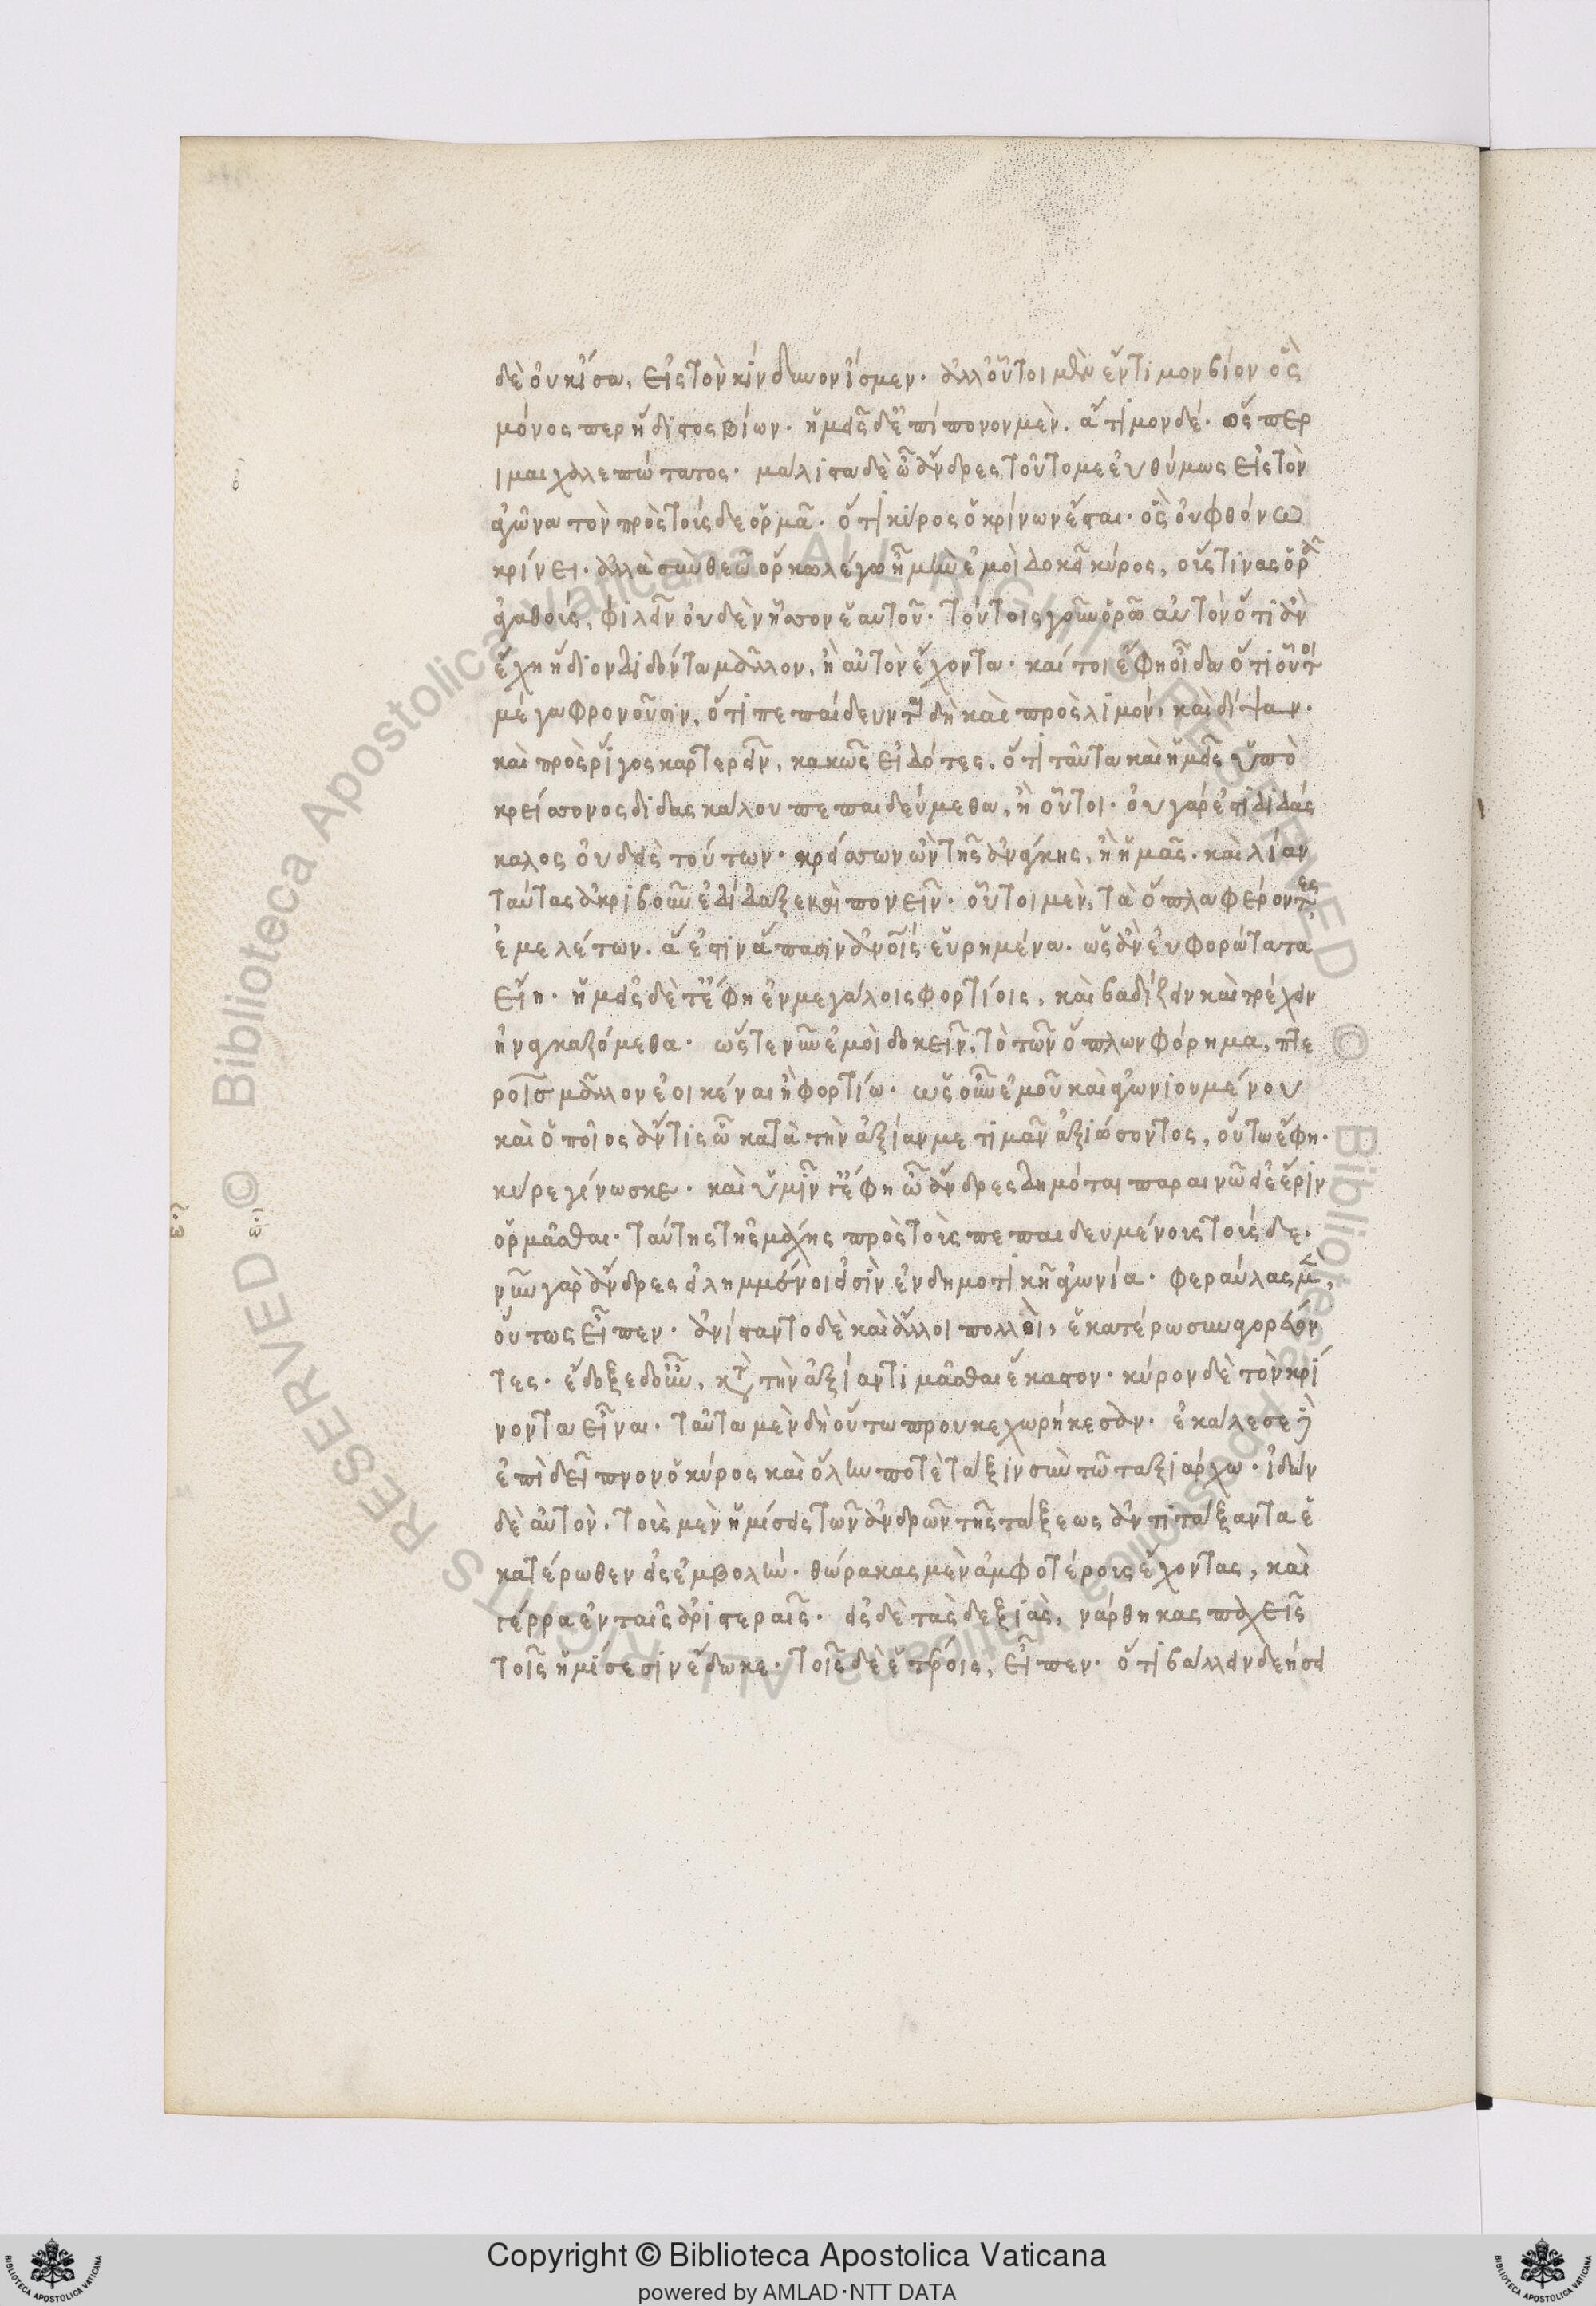 δὲ οὐκ ἴσα, εἰς τὸν κίνδυνον ἴσμεν· ἀλλ οὗτοι μὲν ἔντιμον βίον ὃς
μόνος περ ἥδιστος βίων· ἡμεῖς δ ἐπίπονον μὲν. ἄτιμον δέ· ὥσπερ
ιμαι χαλεπώτατος· μάλιστα δὲ ὦ ἄνδρες τοῦτο με εὐθύμως εἰς τὸν
ἀγῶνα τὸν πρὸς τούς δε ὁρμᾶ· ὅτι κύρος ὁ κρίνων ἔσται· ὃς οὐ φθόνω
κρίνει· ἀλλὰ σὺν θεῶ ὅρκω λέγω ἦ μὴν ἐμοὶ δοκεῖ κύρος, οὕς τινας ὁρᾶ
ἀγαθούς, φιλεῖν οὐδὲν ἧττον ἑαυτοῦ· τούτοις γοῦν ὁρῶ αὐτὸν ὅτι ἂν
ἔχη ἥδιον διδόντα μᾶλλον, ἢ αὐτὸν ἔχοντα· καίτοι ἔφη οἶδα ὅτι οὗτοι
μέγα φρονοῦσιν, ὅτι πεπαίδευνται δὴ καὶ πρὸς λιμόν, καὶ δίψαν·
καὶ πρὸς ῥίγος καρτερεῖν, κακῶς εἰδότες, ὅτι ταῦτα καὶ ἡμεῖς ὑπὸ
κρείττονος διδασκάλου πεπαιδεύμεθα, ἢ οὗτοι· οὐ γάρ ἐστι διδάς
καλος οὐδεὶς τούτων· κρείττων ὢν τῆς ἀνάγκης, ἢ ἡμᾶς· καὶ λίαν
ταύτας ἀκριβοῦν ἐδίδαξε καὶ πονεῖν· οὗτοι μὲν, τὰ ὅπλα φέροντες
ἐμελέτων. ἅ ἐστιν ἅπασιν ἀνοῖς εὑρημένα· ὡς ἂν εὐφορώτατα
εἴη· ἡμεῖς δὲ γ ἔφη ἐν μεγάλοις φορτίοις, καὶ βαδίζειν καὶ τρέχειν
ἠναγκαζόμεθα· ὥστε νῦν ἐμοὶ δοκεῖν, τὸ τῶν ὅπλων φόρημα, πτε
ροῖς μᾶλλον ἐοικέναι ἢ φορτίω· ὡς οὖν ἐμοῦ καὶ ἀγωνιουμένου
καὶ ὁποῖος ἄν τις ὦ κατὰ τὴν ἀξίαν με τιμᾶν ἀξιώσοντος, οὕτω ἔφη·
κύρε γίνωσκε· καὶ ὑμῖν γ ἔφη ὦ ἄνδρες δημόται παραινῶ εἰς ἔριν
ὁρμᾶσθαι· ταύτης τῆς μάχης πρὸς τοὺς πεπαιδευμένους τούς δε·
νῦν γὰρ ἄνδρες εἰλημμένοι εἰσὶν ἐν δημοτικῆ ἀγωνία· φεραύλας μὲν,
οὕτως εἶπεν· ἀνίσταντο δὲ καὶ ἄλλοι πολλοὶ, ἑκατέρω συναγορεύον
τες· ἔδοξε δοῦν, κατὰ τὴν ἀξίαν τιμᾶσθαι ἕκαστον· κύρον δὲ τὸν κρί
νοντα εἶναι· ταῦτα μὲν δὴ οὕτω προυκεχωρήκεσαν· ἐκάλεσε δὲ
ἐπὶ δεῖπνον ὁ κύρος καὶ ὅλην ποτὲ τάξιν σὺν τῶ ταξιάρχω· ἰδών
δὲ αὐτὸν· τοὺς μὲν ἡμίσεις τῶν ἀνδρῶν τῆς τάξεως ἀντιτάξαντα ἑ
κατέρωθεν εἰς ἐμβολὴν· θώρακας μὲν ἀμφοτέρους ἔχοντας, καὶ
γέρρα ἐν ταῖς ἀριστεραῖς· εἰς δὲ τὰς δεξιὰς, νάρθηκας παχεῖς
τοῖς ἡμίσεσιν ἔδωκε· τοῖς δὲ ἑτέροις, εἶπεν· ὅτι βάλλειν δεήσει